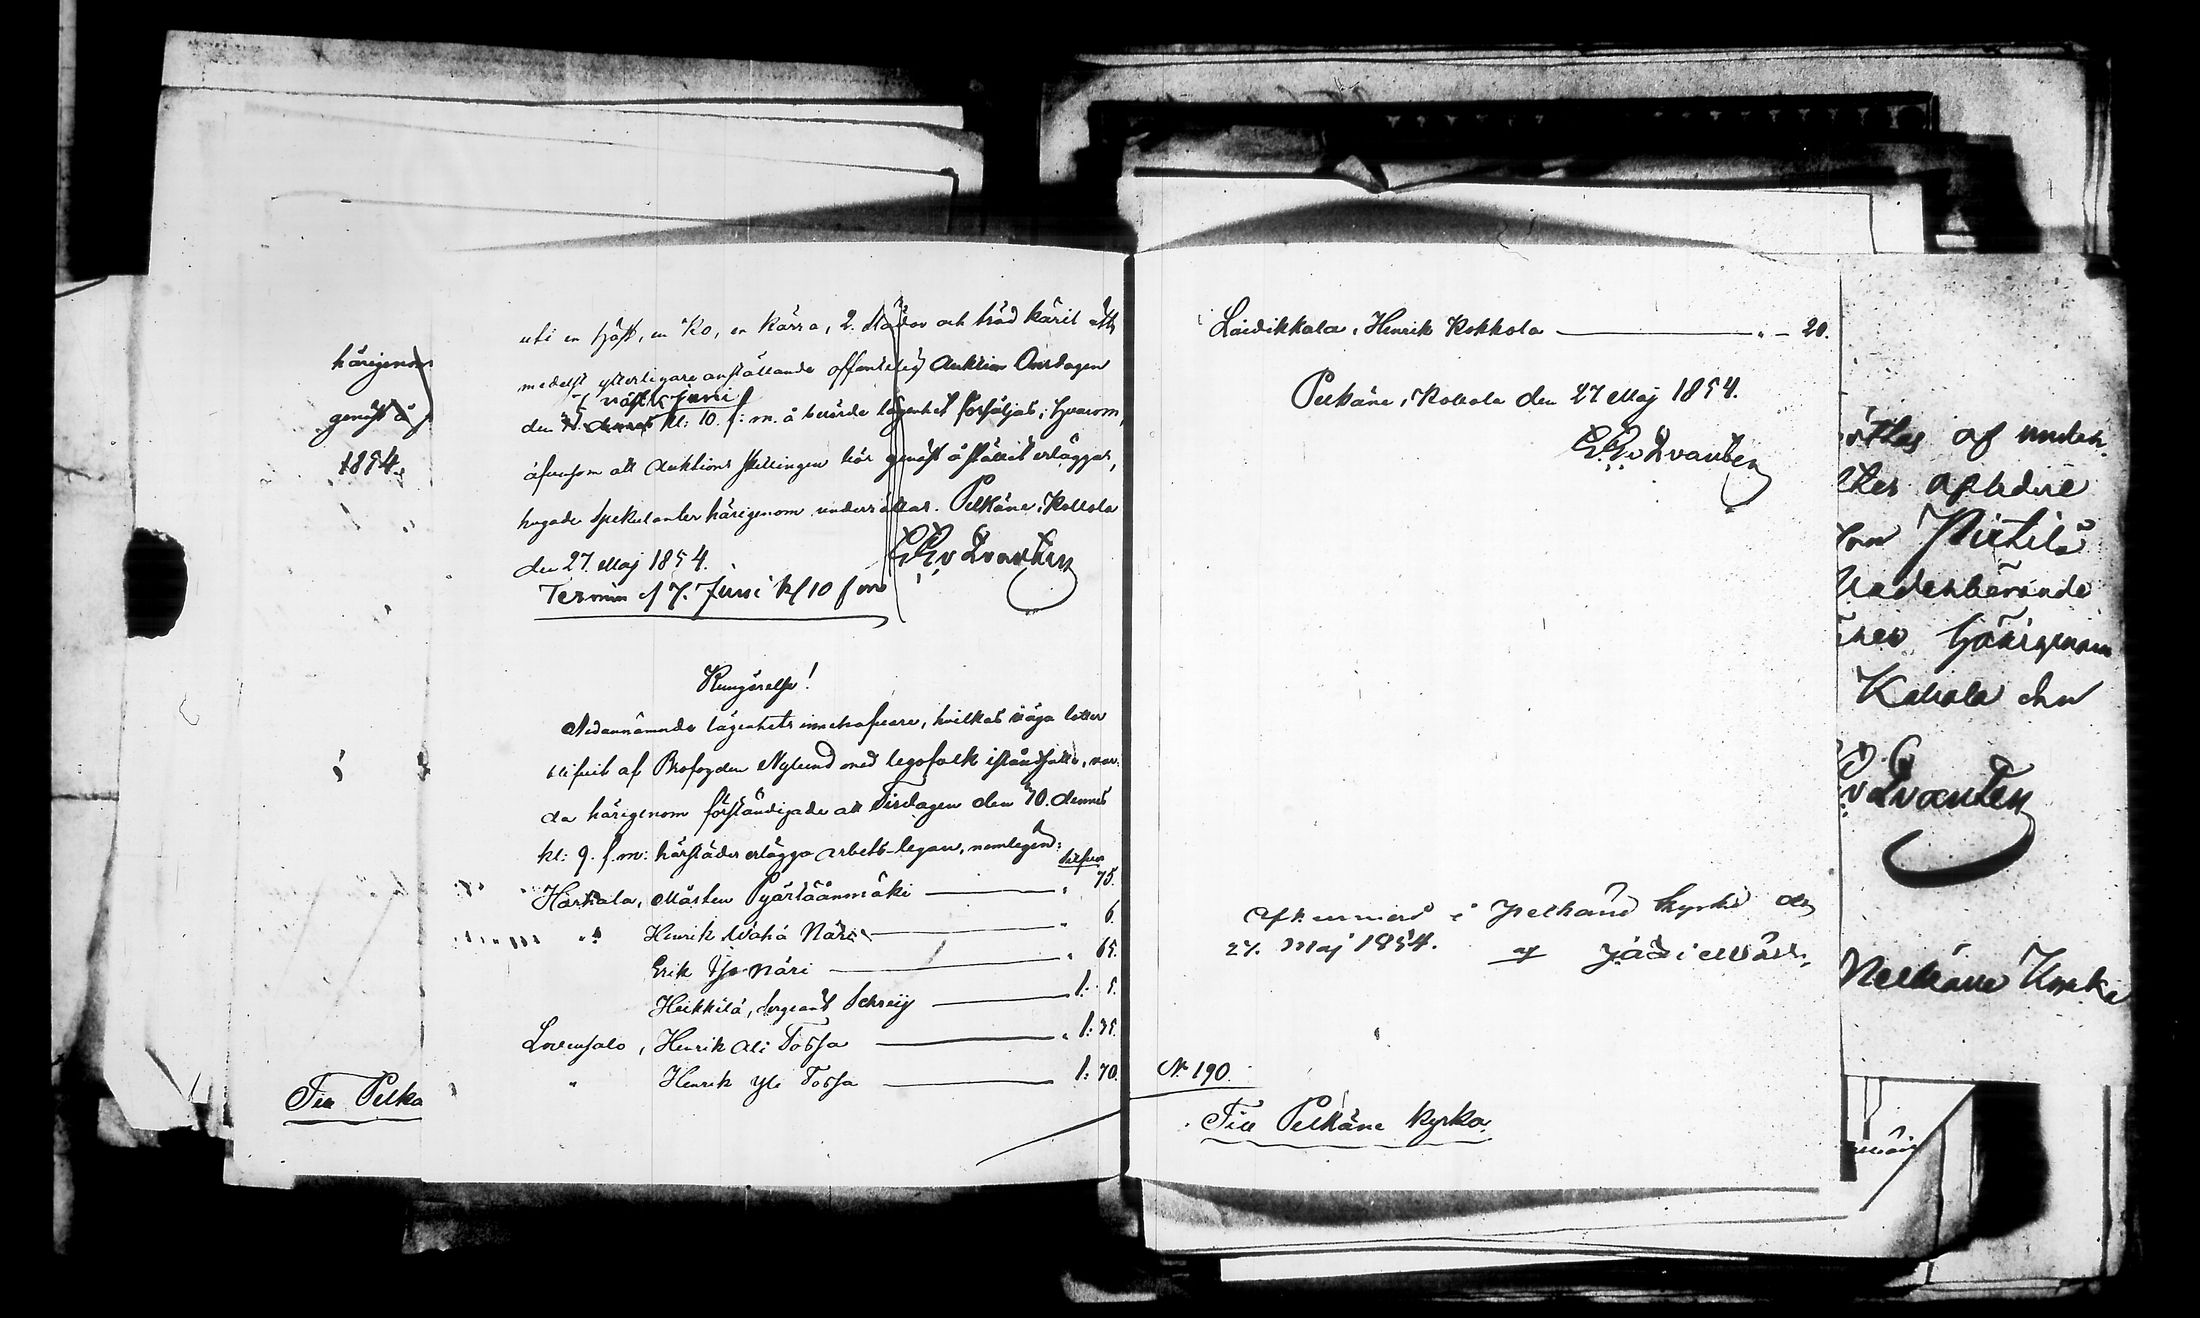 härigenom
genast å
1854.
Till Pelkä
uti en häst, en Ko, en kärra, 2. slädor och träd käril att
medelst ytterligare anställande offentelig Auktion Onsdagen
7 nästk. Juni
den dennes kl: 10. f: m. å berörde lägenhet försäljas; hvarom,
äfvensom att Auktions skillingen bör genast å stället erläggas,
hugade spekulanter härigenom underrättas. Pelkäne, Kollola
den 27. Maj 1854.
Termin d 7. Juni kl 10 f m
Kungörelse!
Nedannämnde lägenhets innehafvare, hvilkas väga lotter
blifvit af Brofogden Nylund med legofolk iståndsatte, var-
da härigenom förständigade att Tisdagen den 30. dennes
kl: 9. f. m: härstädes erlägga arbets-legan, nemligen:
Silfver
Harhala, Mårten Pyörtäänmäki — " 75.
" Henrik Wähä Näri — " 6.
Erik Iso Näri — " 65.
Heikkilä, Sergeant Schreij — 1: 5.
Lovensalo, Henrik Ali Tossa — 1: 35.
" Henrik Yli Tossa — 1: 70.
Laidikkala, Henrik Kokkola — " — 20.
Pelkäne, Kollola den 27 Maj 1854.
i Pelkäne kyrka den
27. Maj 1854. af
N 190.
Till Pelkäne kyrka.
af
Pirtilä
Vederbörande
härigenom
Kollola den
Pelkäne Kyrka